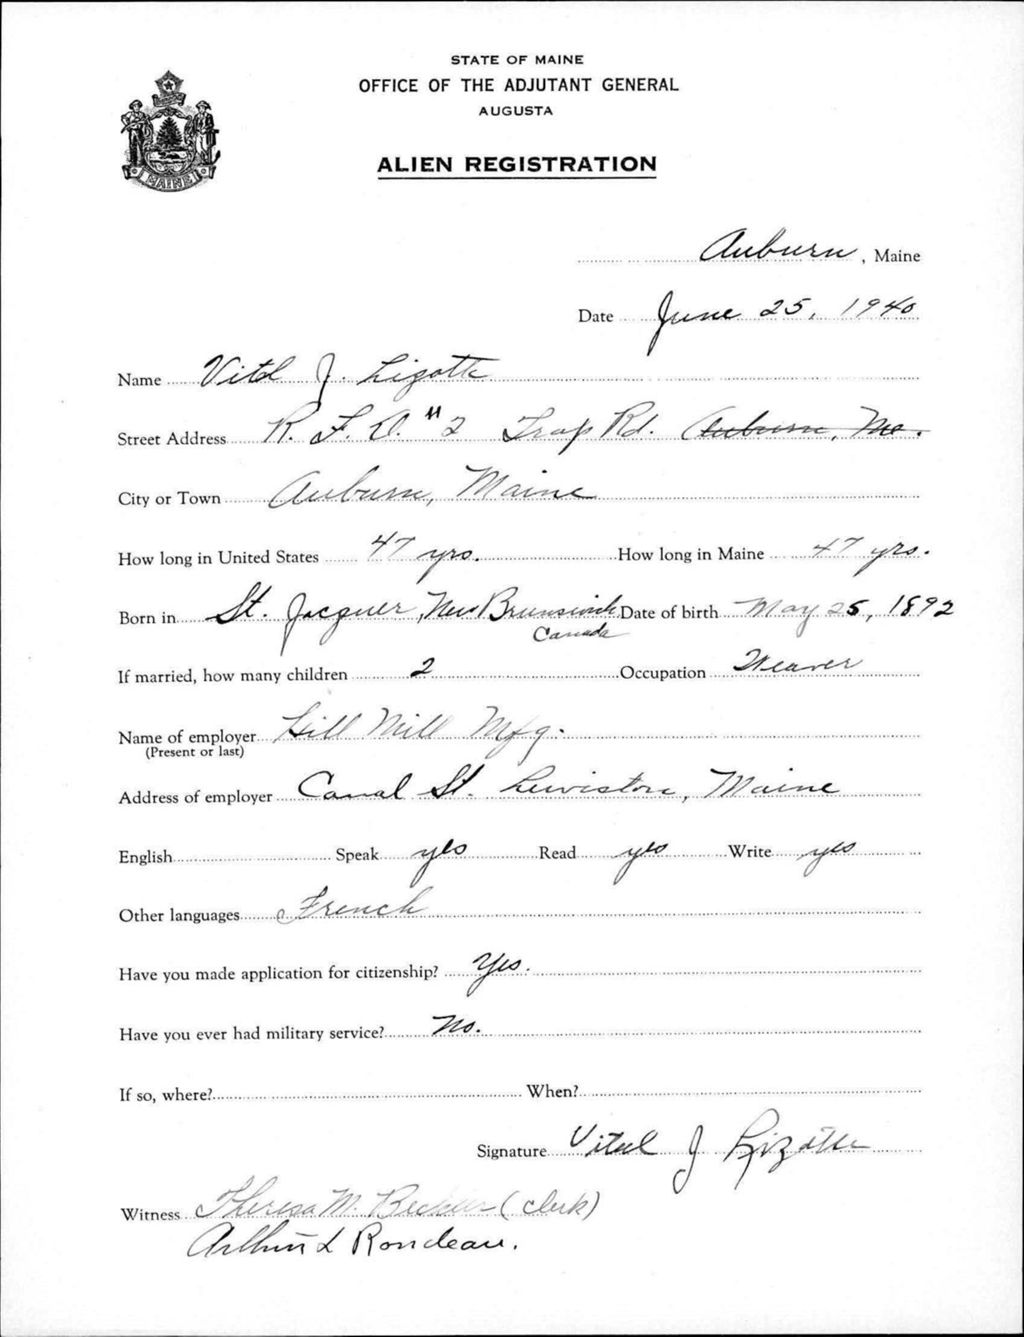 STATE OF MAINE
OFFICE OF THE ADJUTANT GENERAL
AUGUSTA
ALIEN REGISTRATION
MAINE
Auburn, Maine
Date June 25, 1940
Name Vital J. Lizotte
Street Address R. F. D. #2 Trap Rd. Auburn, Me.
City or Town Auburn, Maine
How long in United States 47 yrs. How long in Maine 47 yrs.
Born in St. Jacques, New Brunswick Date of birth May 25, 1892
Canada
If married, how many children 2 Occupation Weaver
Name of employer Hill Mill Mfg.
(Present or last)
Address of employer Canal St. Lewiston, Maine
English Speak yes Read yes Write yes
Other languages French
Have you made application for citizenship? Yes.
Have you ever had military service? No.
If so, where? When?
Signature Vital J Lizotte
Witness Theresa M. (clerk)
Arthur L Rondeau.